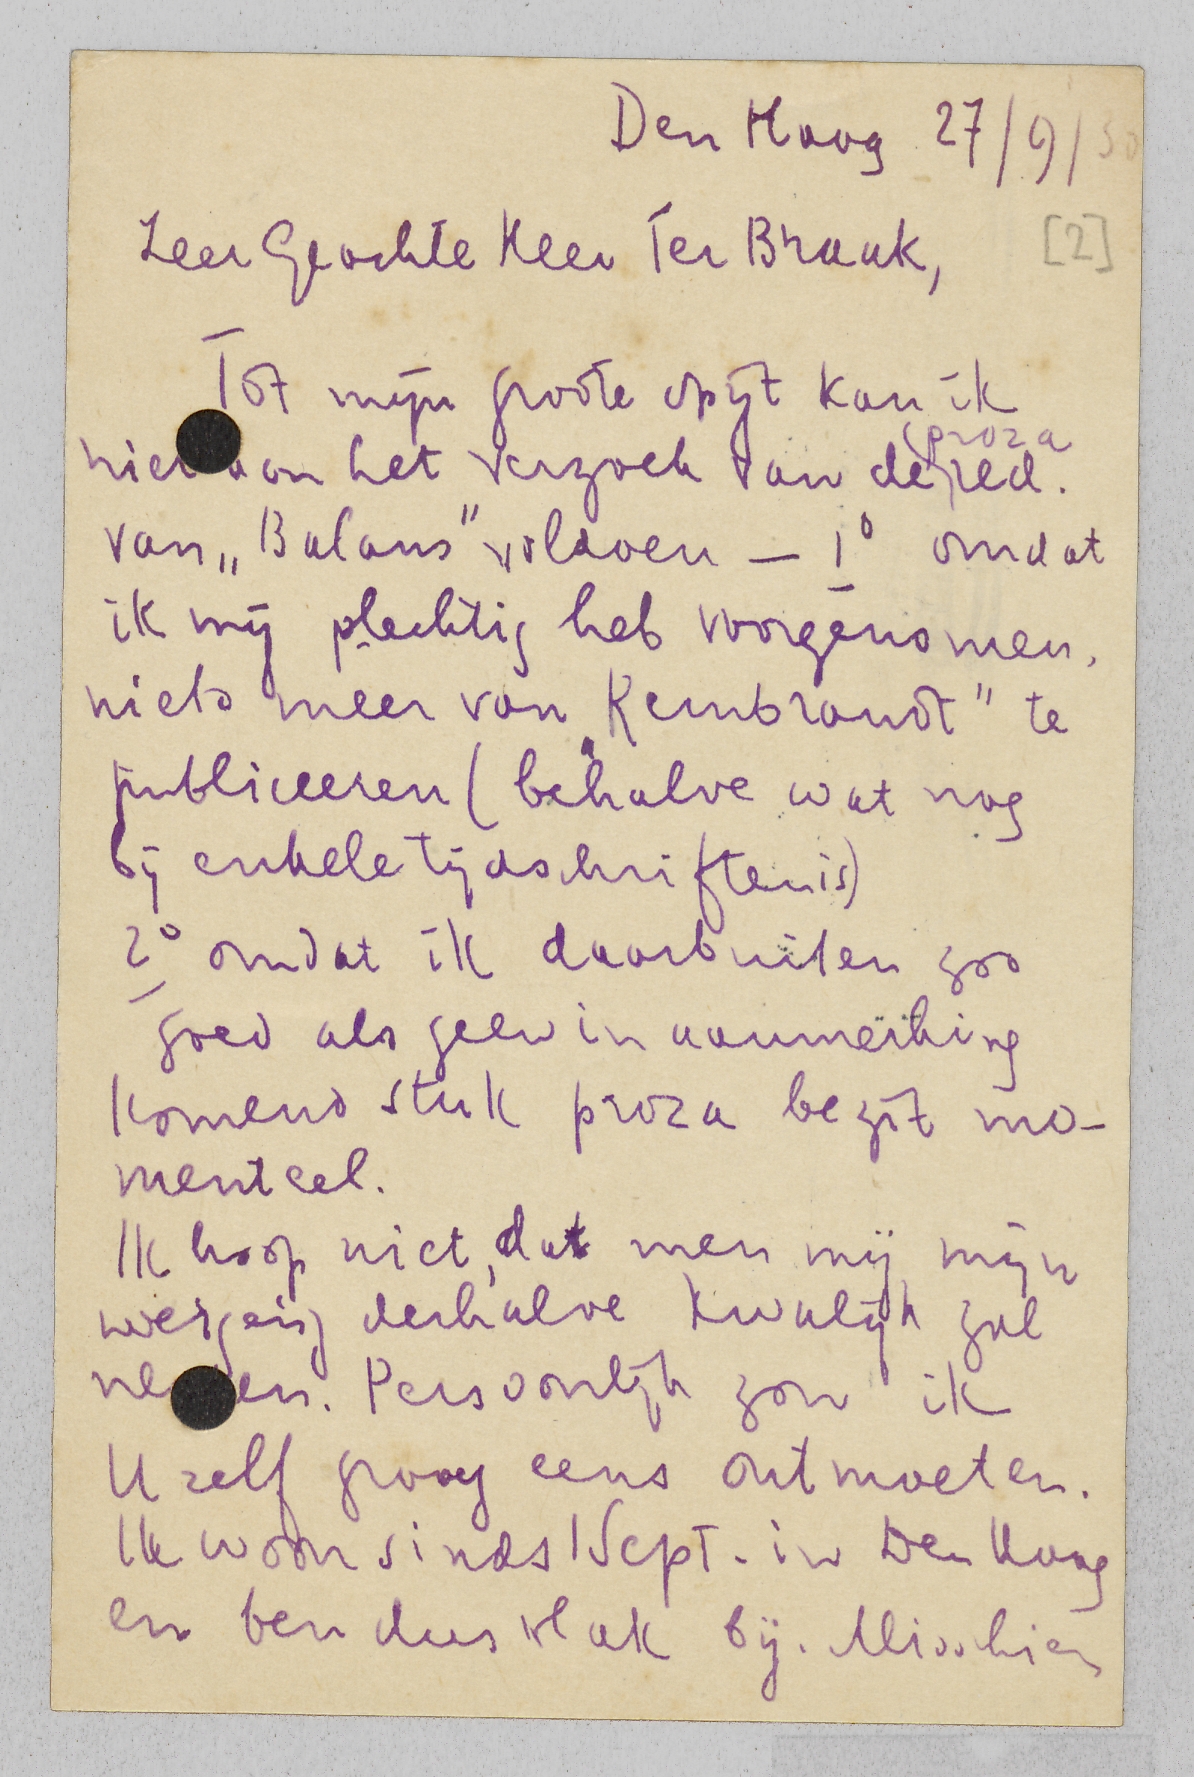 Den Haag 27/9/30
[2]
Zeer Geachte Heer Ter Braak,
Tot mijn groote spijt kan ik
niet aan het verzoek van de (proza) red.
van „Balans” voldoen — 1° omdat
ik mij plechtig heb voorgenomen,
niets meer van „Rembrandt” te
publiceeren (behalve wat nog
bij enkele tijdschriften is)
2° omdat ik daarbuiten zoo
goed als geen in aanmerking
komend stuk proza bezit mo-
menteel.
Ik hoop niet, dat men mij mijn
weigering derhalve kwalijk zal
nemen. Persoonlijk zou ik
U zelf graag eens ontmoeten.
Ik woon sinds 1 Sept. in Den Haag
en ben dus vlak bij. Misschien